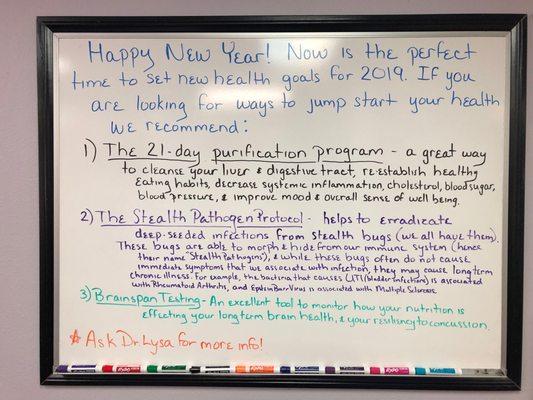 Happy New Year! Now is the perfect
time to set new health goals for 2019. If you
are looking for ways to jump start your health
we recommend:
1) The 21-day purification program - a great way
to cleanse your liver & digestive tract, re-establish healthy
eating habits, decrease systemic inflammation, cholesterol, blood sugar,
blood pressure, & improve mood & overall sense of well being.
2) The Stealth Pathogen Protocol - helps to erradicate
deep-seeded infections from stealth bugs (we all have them).
These bugs are able to morph & hide from our immune system (hence
their name "Stealth Pathogens"), & while these bugs often do not cause
immediate symptoms that we associate with infection, they may cause long term
chronic illness. For example, the bacteria that causes UTI (bladder infections) is associated
with Rheumatoid Arthritis, and Epstein Barr Virus is associated with Multiple Sclerosis.
3) Brainspan Testing - An excellent tool to monitor how your nutrition is
effecting your long term brain health, & your resiliency to concussion.
Ask Dr Lysa for more info!